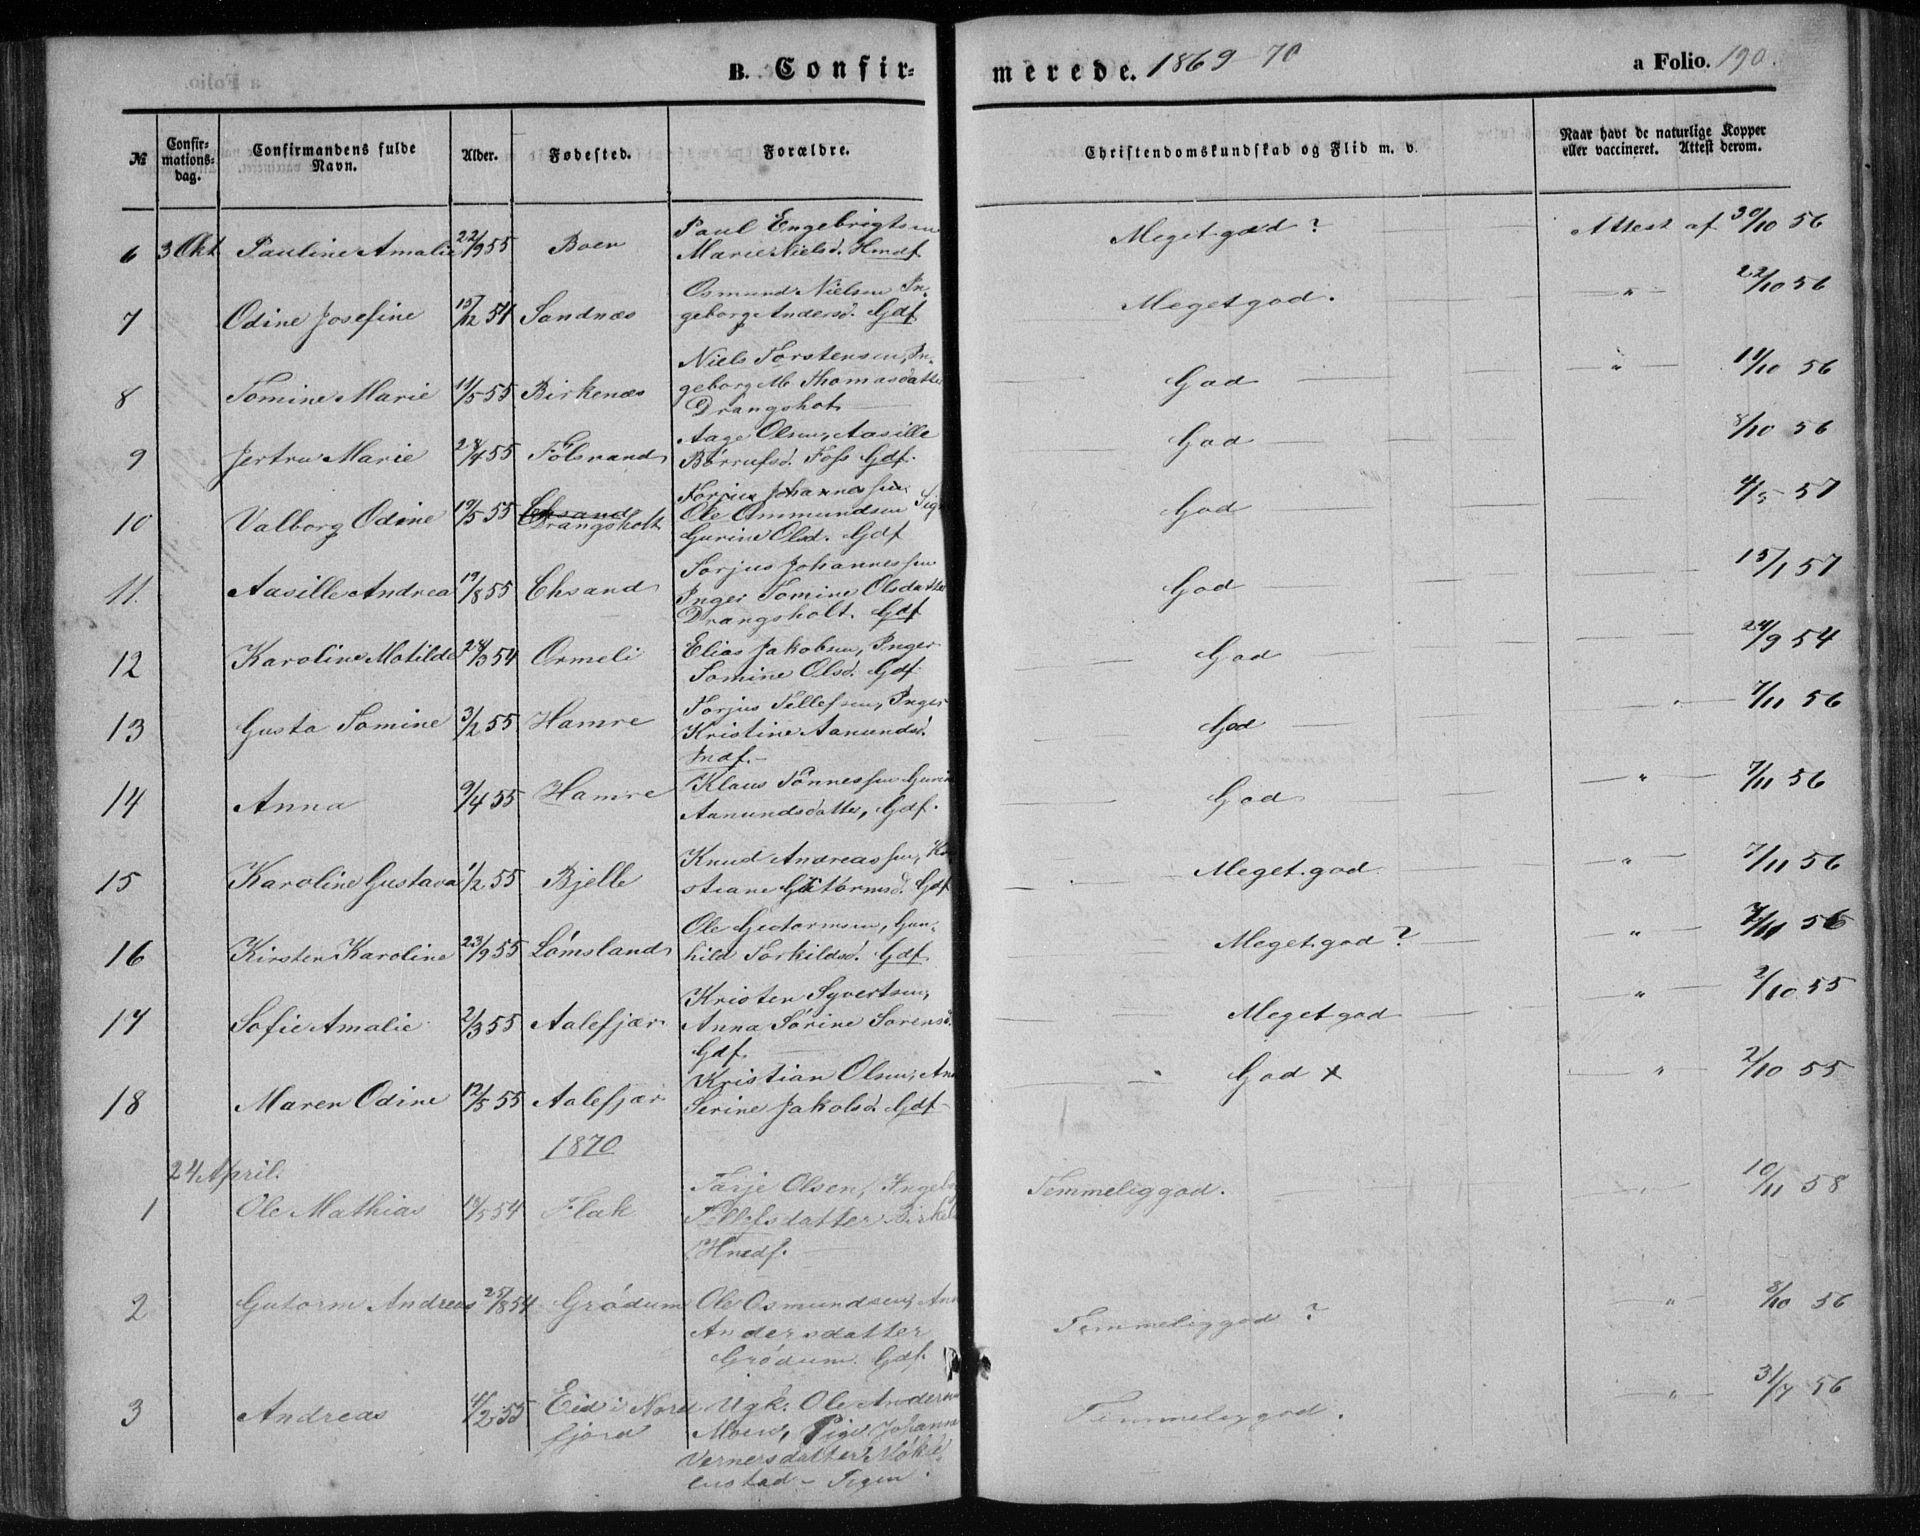 B. Confir-
merede. 1869-70
a Folio. 190.
№
Confir-
mations-
dag.
Confirmandens fulde
Navn.
Alder.
Fødested.
Forældre.
Christendomskundskab og Flid m. v.
Naar havt de naturlige Kopper
eller vaccineret. Attest derom.
6 3 Okt Pauline Amalie 22/9 55 Boen Paul Engebrigtsen
Marie Nielsd. Hmdf Meget god ? Attest af 30/10 56
7 Odine Josefine 15/12 54 Sandnæs Osmund Nielsen In-
geborg Andersd. Gdf Meget god. " 22/10 56
8 Tomine Marie 11/5 55 Birkenæs Niels Torstensen, In-
geborg M. Thomasdatter
Drangsholt God " 14/10 56
9 Jertru Marie 28/4 55 Folsrand Aage Olsen, Aasille
Börrufsd. Foss Gdf. God 8/10 56
10 Valborg Odine 19/5 55 Chsand
Drangsholt Torjus Johannessen
Ole Ommundsen Sig
Gurine Olsd. Gdf God 4/5 57
11. Aasille Andrea 19/8 55 Chsand Torjus Johannessen
Inger Tomine Olsdatter
Drangsholt. Gdf God 15/1 57
12 Karoline Matilde 28/3 54 Ormeli Elias Jakobsen, Inger
Tomine Olsd. Gdf. God 24/9 54
13 Gusta Tomine 3/2 55 Hamre Torjus Tellefsen, Inger
Kristine Aanundsd.
Indf. God " 7/11 56
14 Anna 9/4 55 Hamre Klaus Tönnessen Gurin
Aanundsdatter, Gdf. God " 7/11 56
15 Karoline Gustava 1/2 55 Bjelle Knud Andreassen, Kri
stiane Gutormsd. Gdf Meget god " 7/11 56
16 Kirsten Karoline 23/9 55 Lömsland Ole Gutormsen, Gun-
hild Torkildsd. Gdf Meget god ? " 7/11 56
17 Sofie Amalie 2/3 55 Aalefjær Kristen Syvertsen,
Anna Sörine Sörensd.
Gdf Meget god " 2/10 55
18 Maren Odine 12/5 55 Aalefjær Kristian Olsen, An
Serine Jakobsd. Gdf " God x " 2/10 55
1870
24 April.
1 Ole Mathias 18/5 54 Flak Tarje Olsen, Ingeb
Tellefsdatter Birkel
Hmdf. Temmelig god. " 10/11 58
2 Gutorm Andreas 25/8 54 Grödum Ole Osmundsen, Ann
Andersdatter
Grödum. Gdf. Temmelig god ? " 8/10 56
3 Andreas 4/2 55 Eid i Nord
fjord Ugk. Ole Andersen
Moen, Pige Johanne
Vernersdatter
Temmelig god. " 31/7 56